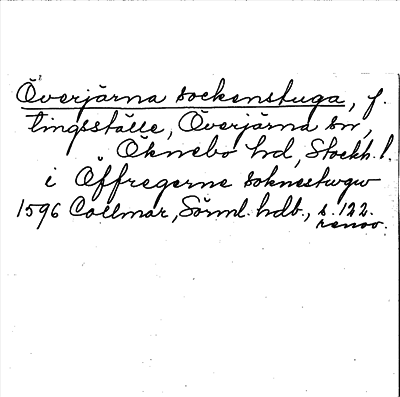 Överjärna sockenstuga, f.
tingsställe, Överjärna sn,
Öknebo hd, Stockh. l.
i Öffregerne soknestugw
1596 Collmar, Sörml. hdb., s. 122.
renov.